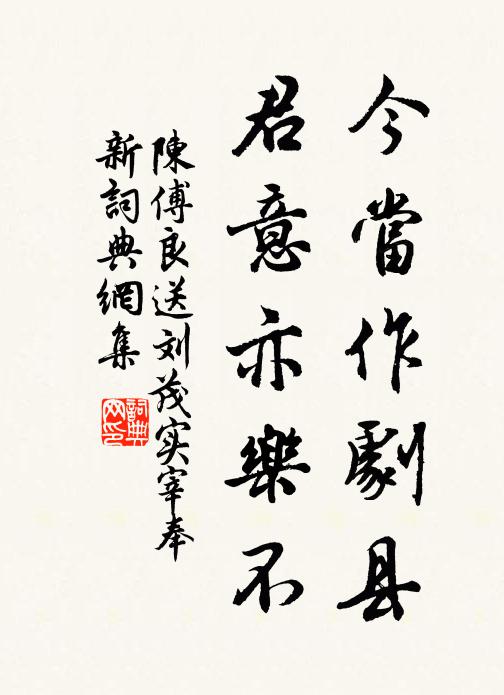 今當作劇县
君意亦樂不
陳傅良送刘茂实宰奉
新詞典網集
詞典網印